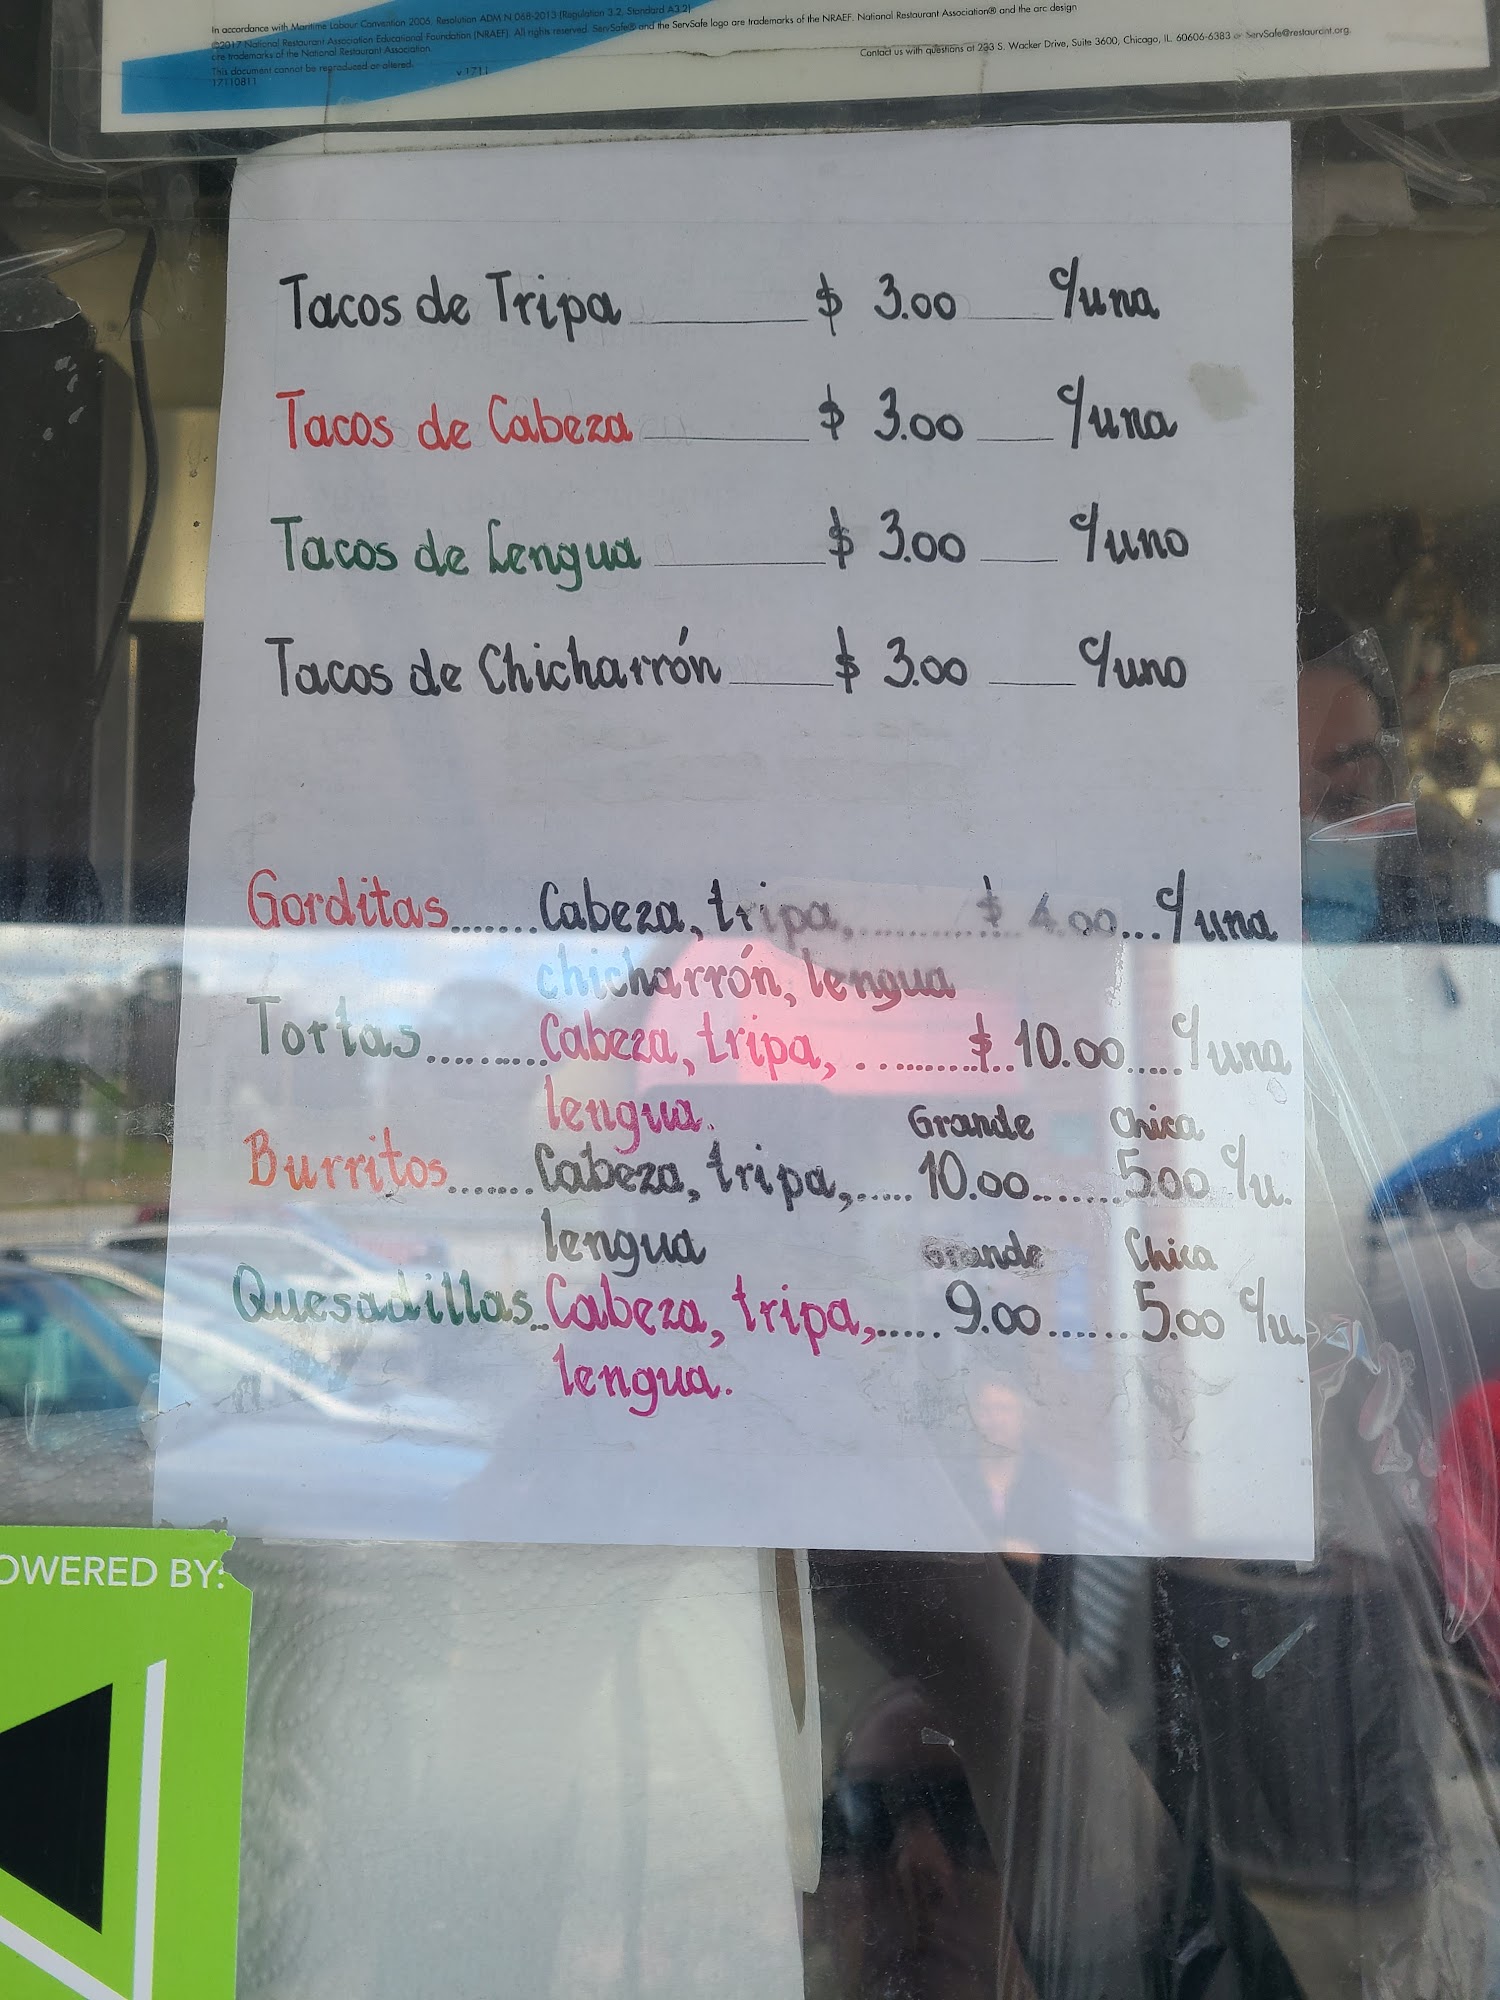 In accordance with Maritime Labour Convention 2006, Resolution ADM N 068-2013 (Regulation 3.2, Standard A3.2)
©2017 National Restaurant Association Educational Foundation (NRAEF). All rights reserved. ServSafe® and the ServSafe logo are trademarks of the NRAEF. National Restaurant Association® and the arc design
are trademarks of the National Restaurant Association.
This document cannot be reproduced or altered.
17110811 v.1711
Contact us with questions at 233 S. Wacker Drive, Suite 3600, Chicago, IL 60606-6383 or ServSafe@restaurant.org.
Tacos de Tripa $ 3.00 c/una
Tacos de Cabeza $ 3.00 c/una
Tacos de Lengua $ 3.00 c/uno
Tacos de Chicharrón $ 3.00 c/uno
Gorditas.......Cabeza, tripa,............$ 4.00...c/una
chicharrón, lengua
Tortas.........Cabeza, tripa, ..........$ 10.00.....c/una
lengua. Grande Chica
Burritos.......Cabeza, tripa,...... 10.00.......5.00 c/u.
lengua Grande Chica
Quesadillas..Cabeza, tripa,..... 9.00......5.00 c/u.
lengua.
OWERED BY: